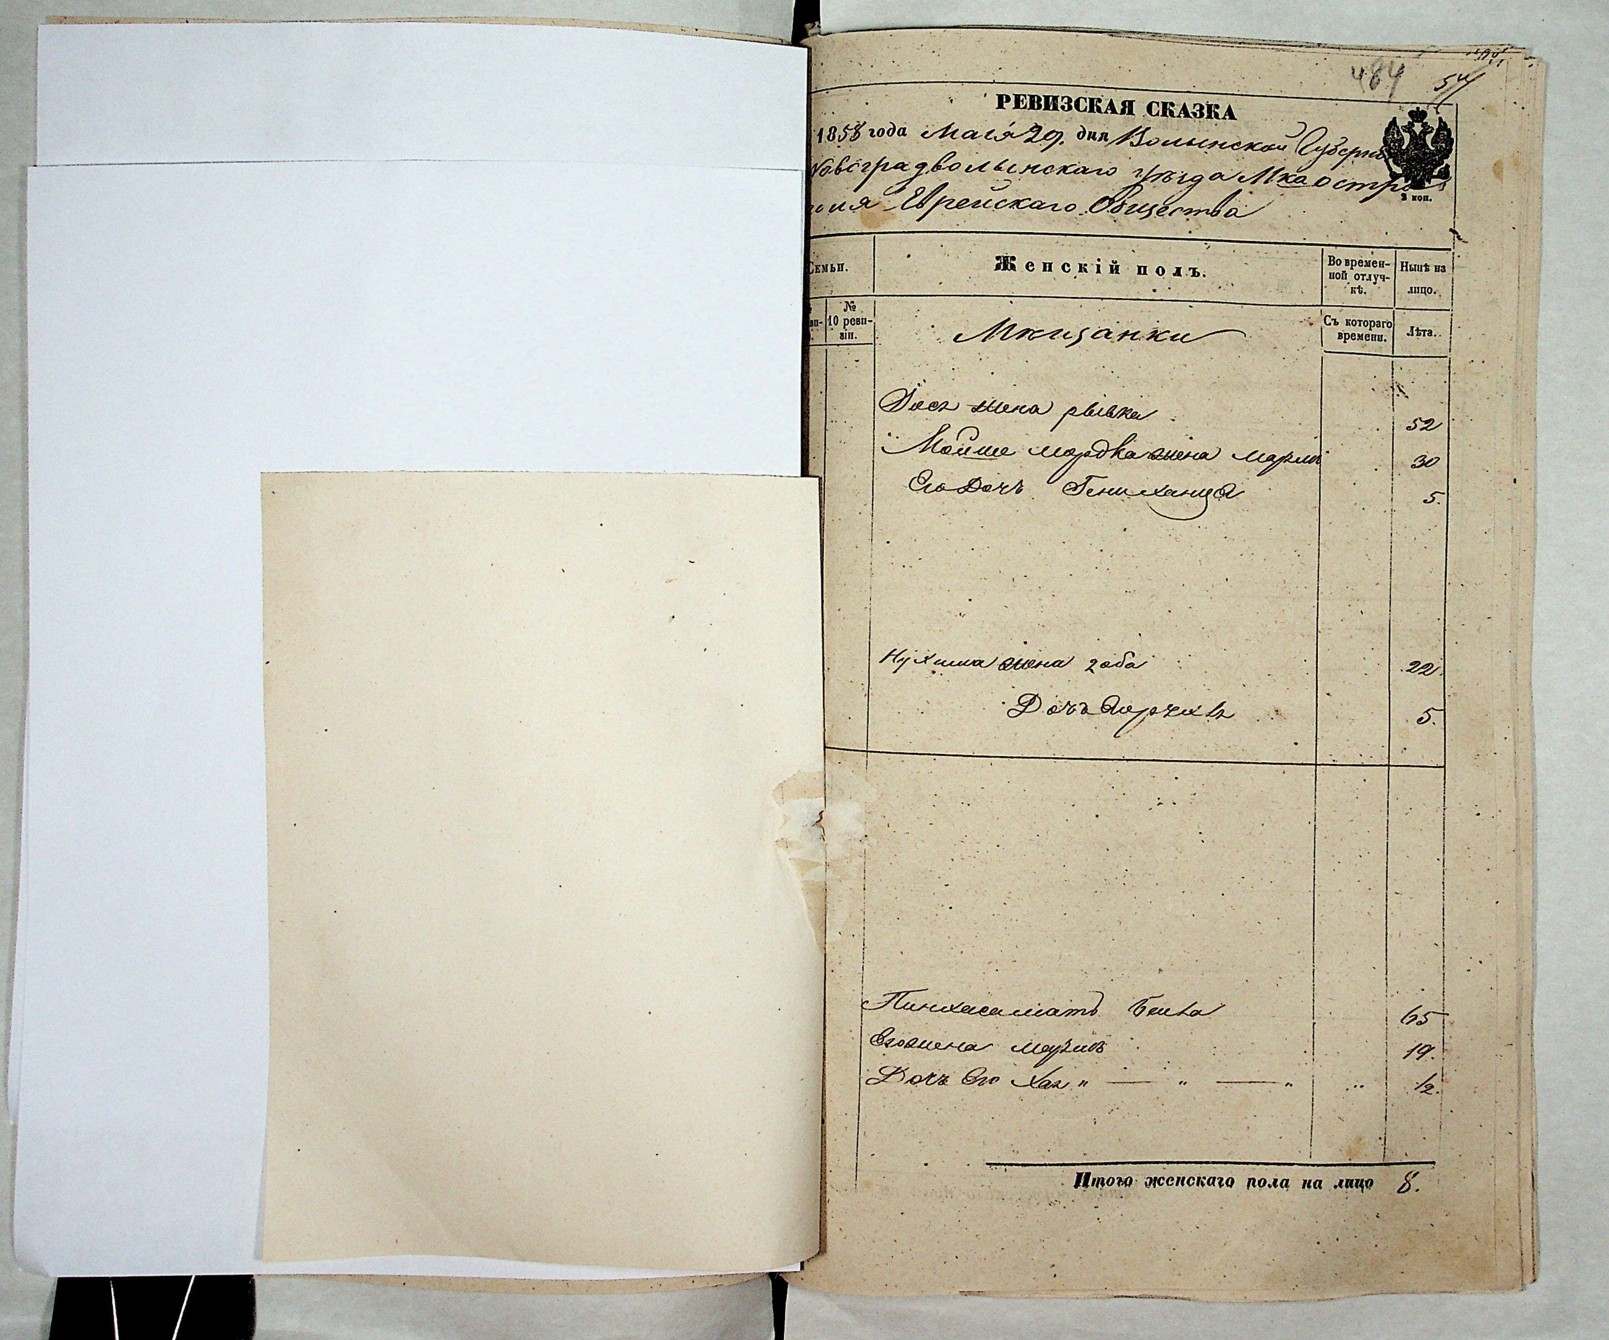 484 54
РЕВИЗСКАЯ СКАЗКА
1858 года Мая 29. дня Волынской Губерніи
Новоградволынскаго уѣзда Мка остро
поля Еврейскаго Общества
2 коп.
Семьи.
Женскій полъ.
Во времен-
ной отлуч-
кѣ.
Нынѣ на
лицо.
№
10 реви-
зіи.
Мѣщанки
Съ котораго
времени.
Лѣта.
жена рывка 52
Мойше мордка жена 30
Его Дочь 5.
жена 22
Дочь 5.
Пинхаса мать Бейла 65
Его жена 19.
Дочь Его Хая " — " — " " 1/2.
Итого женскаго пола на лицо 8.